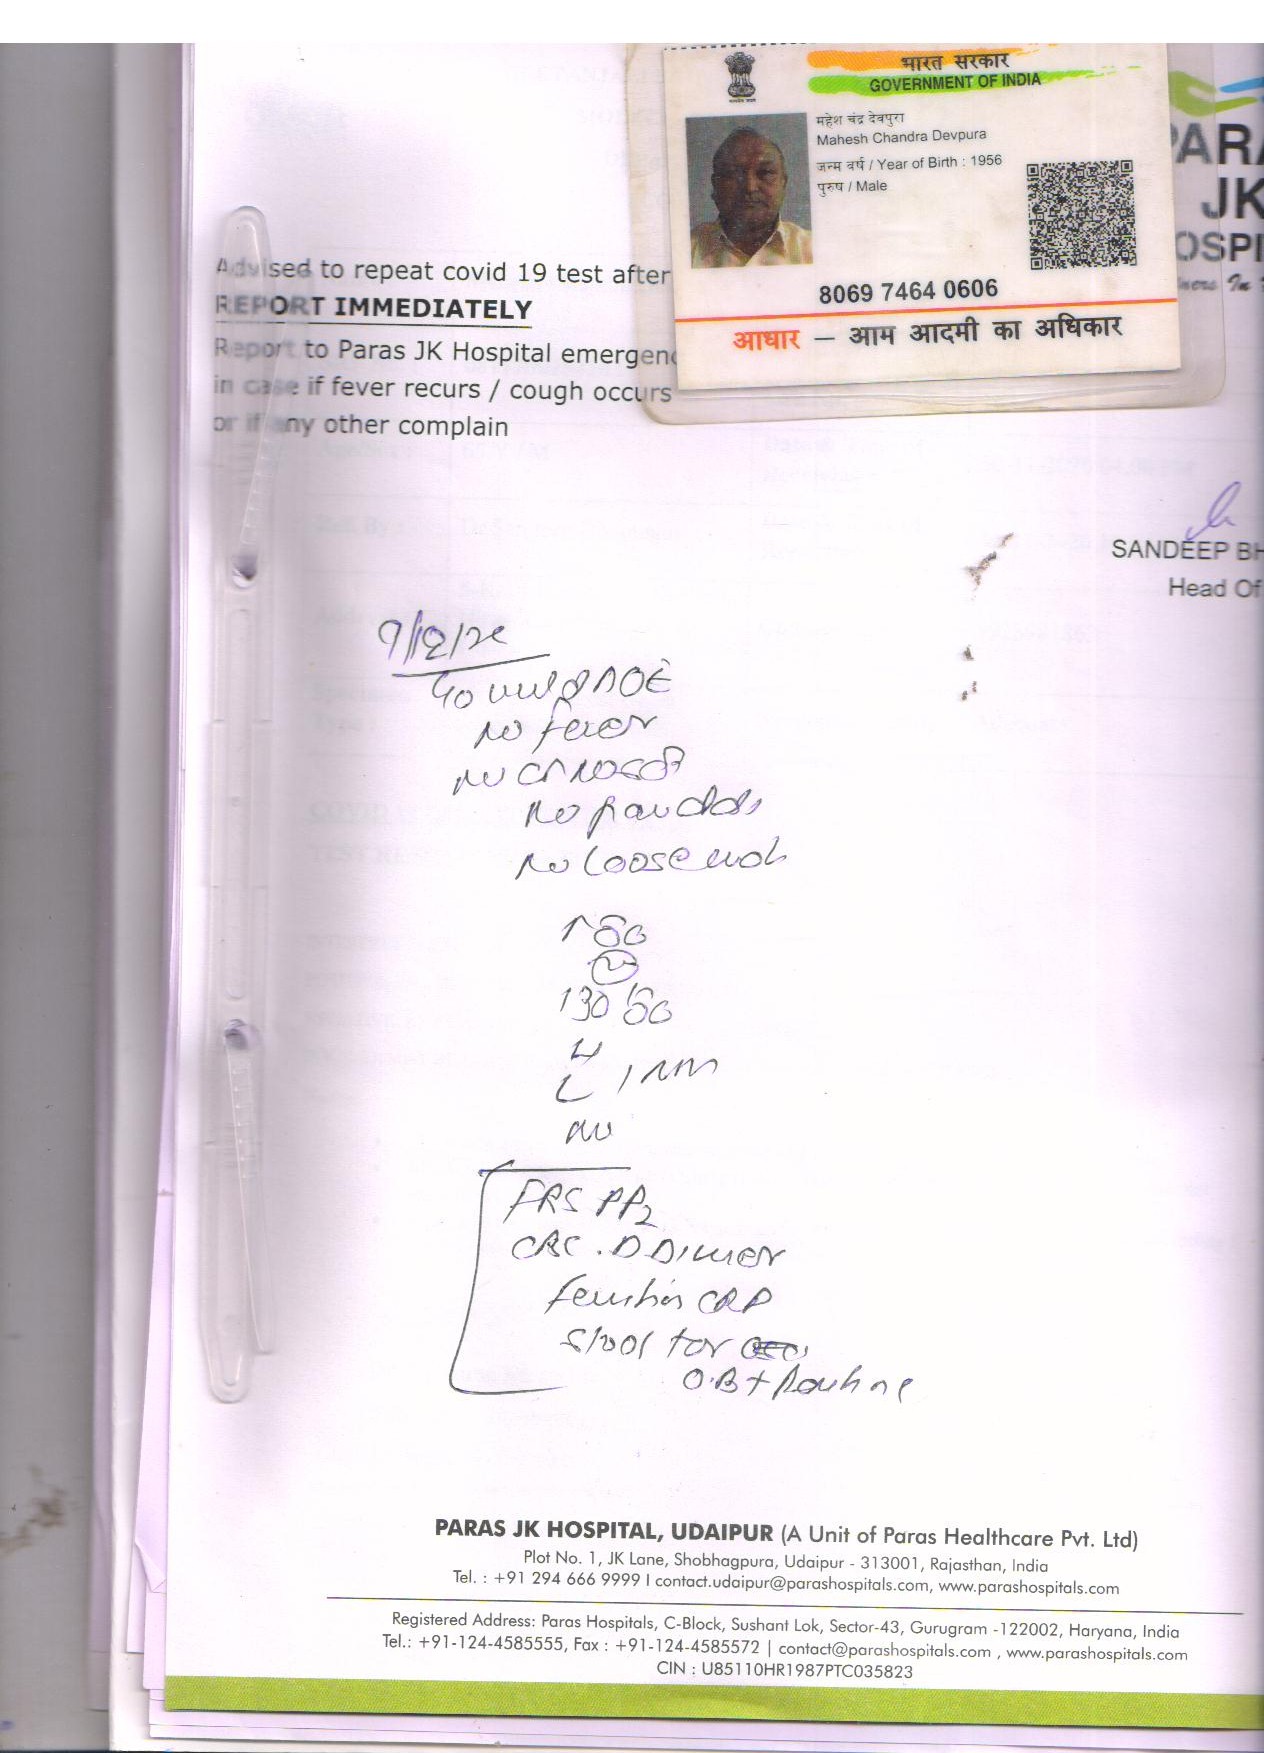 भारत सरकार
GOVERNMENT OF INDIA
महेश चंद्र देवपुरा
Mahesh Chandra Devpura
जन्म वर्ष / Year of Birth : 1956
पुरुष / Male
8069 7464 0606
आधार – आम आदमी का अधिकार
PARA
JK
OSPI
In
Advised to repeat covid 19 test after
REPORT IMMEDIATELY
Report to Paras JK Hospital emergenc
in case if fever recurs / cough occurs
or if any other complain
SANDEEP BH
Head Of
9/12/20
No fever
No
No
No loose
130/80
FBS PP2
CBC . D Dimer
Ferritin CRP
Stool for
O.B + Routine
PARAS JK HOSPITAL, UDAIPUR (A Unit of Paras Healthcare Pvt. Ltd)
Plot No. 1, JK Lane, Shobhagpura, Udaipur - 313001, Rajasthan, India
Tel. : +91 294 666 9999 I contact.udaipur@parashospitals.com, www.parashospitals.com
Registered Address: Paras Hospitals, C-Block, Sushant Lok, Sector-43, Gurugram -122002, Haryana, India
Tel.: +91-124-4585555, Fax : +91-124-4585572 | contact@parashospitals.com , www.parashospitals.com
CIN : U85110HR1987PTC035823